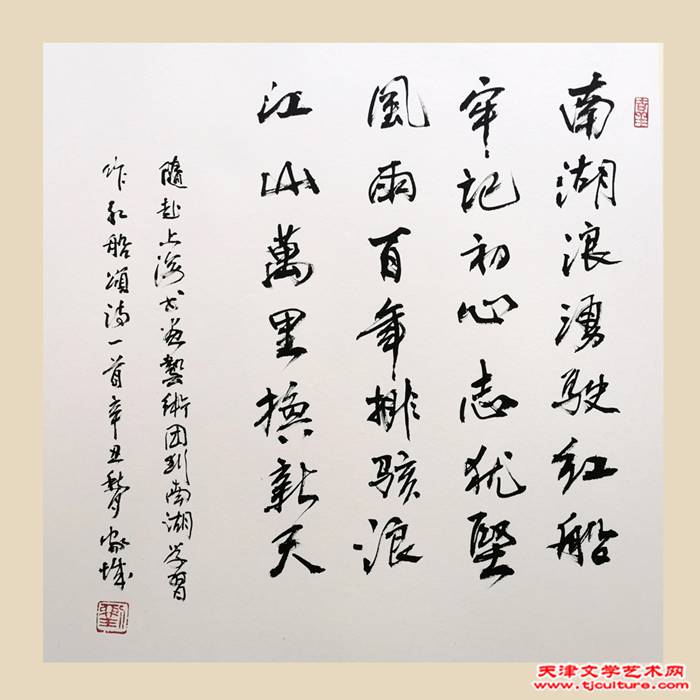 南湖浪湧驶红船
牢记初心志犹堅
風雨百年排骇浪
江山萬里换新天
隨赴上海书画藝術团到南湖学習
作红船颂诗一首辛丑
天津文学艺术网
www.tjculture.com